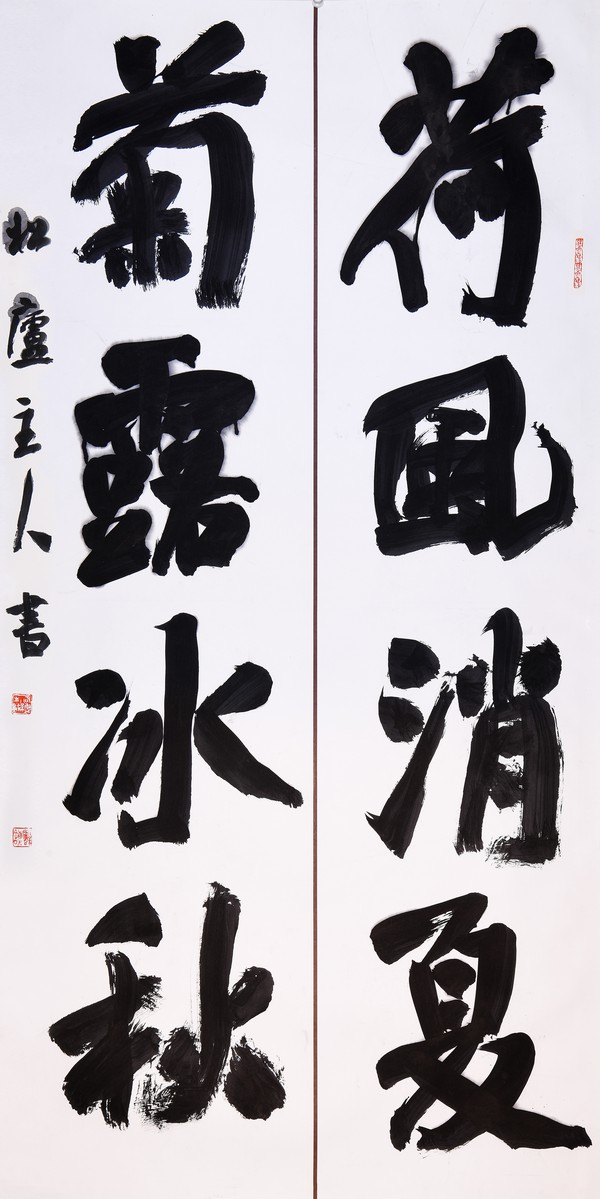 荷風消夏
菊露冰秋
松廬主人書